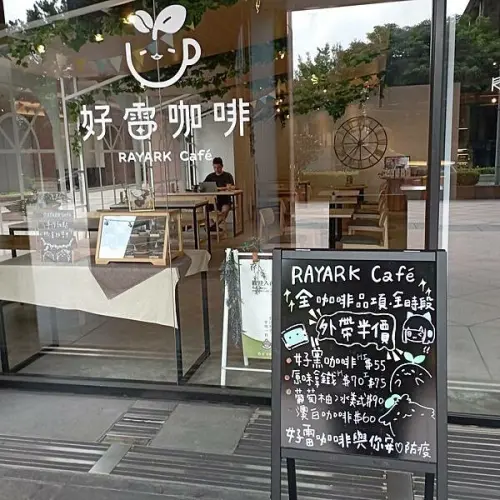 好雷咖啡
RAYARK Café
RAYARK Café
全咖啡品項全時段
外帶半價
好黑咖啡 H/I $55
原味拿鐵 H $70 I $75
葡萄柚冰美式 $90
澳白咖啡 $60
好雷咖啡與你安心防疫